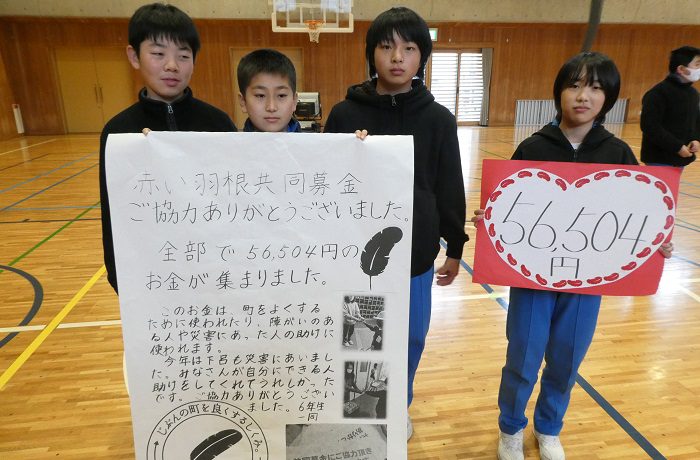 赤い羽根共同募金
ご協力ありがとうございました。
全部で56,504円の
お金が集まりました。
このお金は、町をよくする
ために使われたり、障がいのあ
る人や災害にあった人の助けに
使われます。
今年は下呂も災害にあいまし
た。みなさんが自分にできる人
助けをしてくれてうれしかった
です。ご協力ありがとうござい
ました。6年生
一同
じぶんの町を良くするしくみ。
募金にご協力頂き
56,504
円